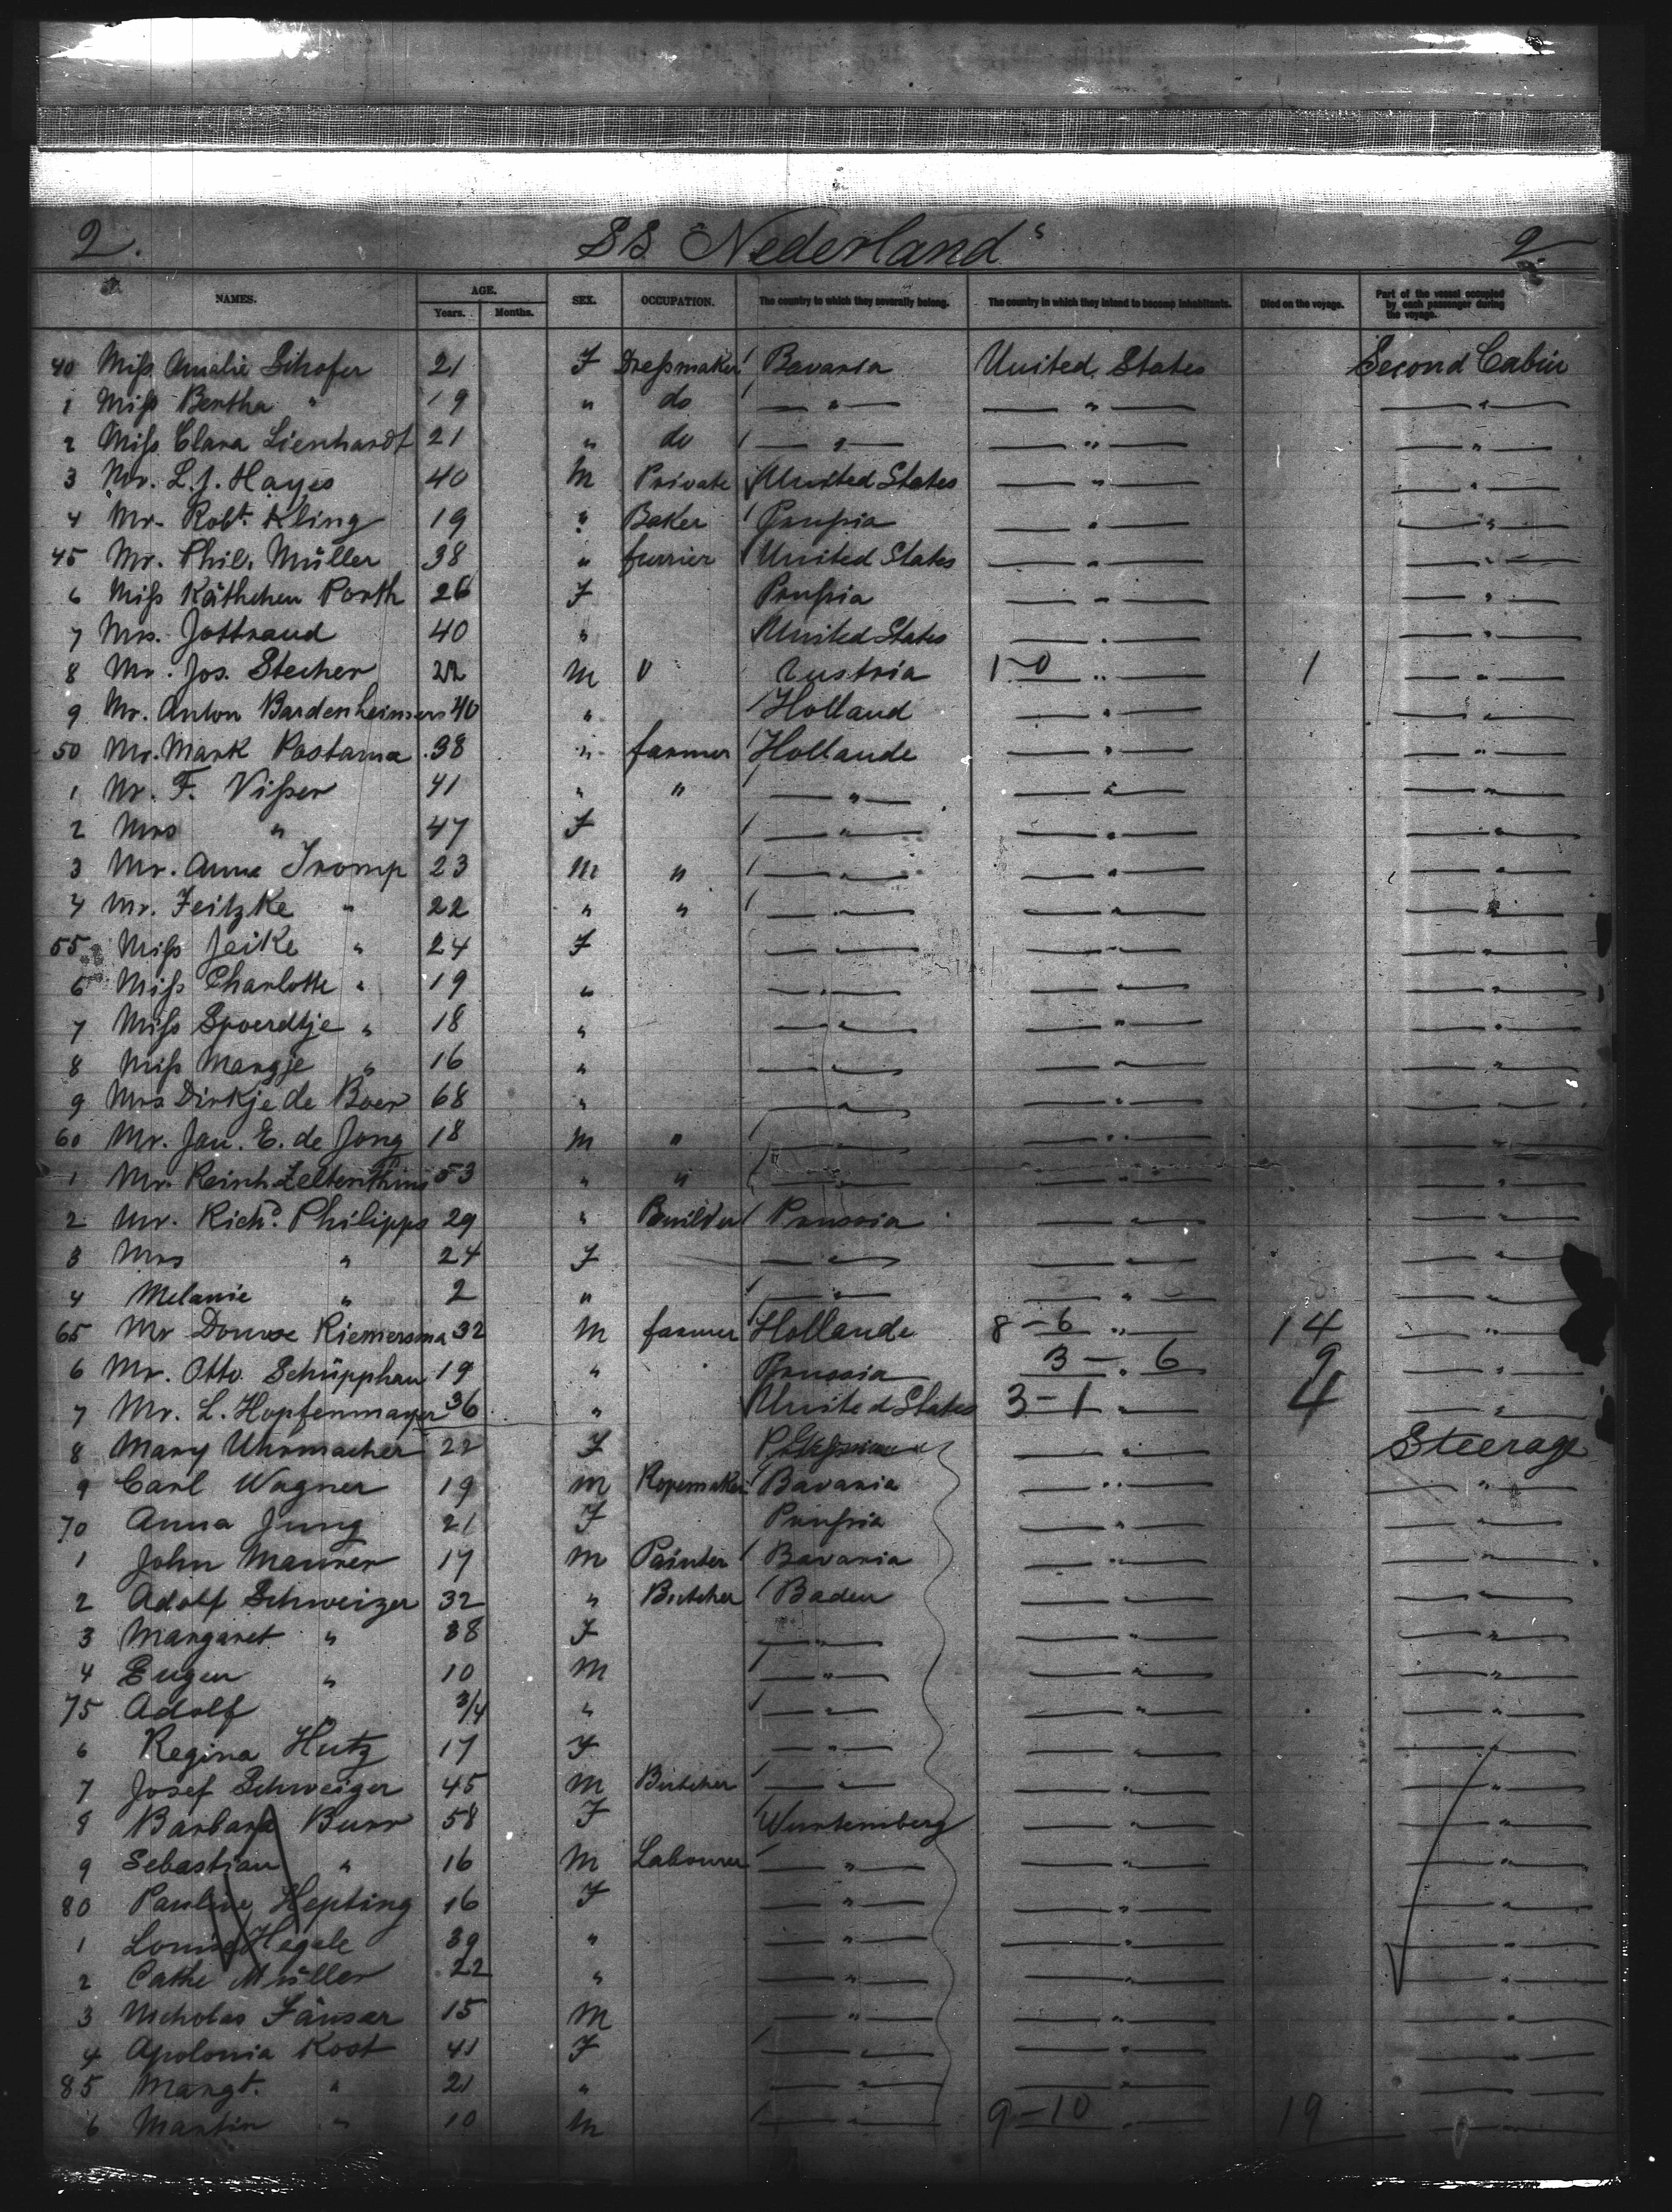 2. SS "Nederland" 2
NAMES. AGE. SEX. OCCUPATION. The country to which they severally belong. The country in which they intend to become inhabitants. Died on the voyage. Part of the vessel occupied by each passenger during the voyage.
Years. Months.
40 Miss Amalie Schofer 21 F Dressmaker Bavaria United States Second Cabin
1 Miss Bertha " 19 " do — " — — " — — " —
2 Miss Clara Lienhardt 21 " do — " — — " — — " —
3 Mr. L. J. Hayes 40 M Private United States — " — — " —
4 Mr. Robt. Kling 19 " Baker Prussia — " — — " —
45 Mr. Phil. Müller 38 " furrier United States — " — — " —
6 Miss Käthchen Porth 26 F Prussia — " — — " —
7 Mrs. Jottrand 40 " United States — " — — " —
8 Mr. Jos. Stecher 22 M 0 Austria 1-0 — " — 1 — " —
9 Mr. Anton Bardenheimers 40 " Holland — " — — " —
50 Mr. Mark Postama 38 " farmer Hollande — " — — " —
1 Mr. F. Visser 41 " " — " — — " — — " —
2 Mrs " 47 F — " — — " — — " —
3 Mr. Anne Tromp 23 M " — " — — " — — " —
4 Mr. Feitzke " 22 " " — " — — " — — " —
55 Miss Jeike " 24 F — " — — " — — " —
6 Miss Charlotte " 19 " — " — — " — — " —
7 Miss Spoerdtje " 18 " — " — — " — — " —
8 Miss Margje " 16 " — " — — " — — " —
9 Mrs Dirkje de Boer 68 " — " — — " — — " —
60 Mr. Jan. E. de Jong 18 M " — " — — " — — " —
1 Mr. Reinh 53 " " — " — — " — — " —
2 Mr. Richd. Philipps 29 " Builder Prussia — " — — " —
3 Mrs " 24 F — " — — " — — " —
4 Melanie " 2 " — " — — " — — " —
65 Mr Douwe Riemersma 32 M farmer Hollande 8-6 — " — 14 — " —
6 Mr. Otto Schüpphau 19 " Prussia 3-6 — " — 9 — " —
7 Mr. L. Hopfenmayer 36 " United States 3-1 — " — 4 — " —
8 Mary Uhrmacher 22 F — " — Steerage
9 Carl Wagner 19 M Ropemaker Bavaria — " — — " —
70 Anna Jung 21 F Prussia — " — — " —
1 John Maurer 17 M Painter Bavaria — " — — " —
2 Adolf Schweizer 32 " Butcher Baden — " — — " —
3 Margaret " 38 F — " — — " — — " —
4 Eugen " 10 M — " — — " — — " —
75 Adolf " 3/4 " — " — — " — — " —
6 Regina Hutz 17 F — " — — " — — " —
7 Josef Schweizer 45 M Butcher — " — — " — — " —
8 Barbara Burr 58 F Wurtemberg — " — — " —
9 Sebastian " 16 M Labourer — " — — " — — " —
80 Pauline Hepting 16 F — " — — " — — " —
1 Louise Hagele 39 " — " — — " — — " —
2 Cathe Müller 22 " — " — — " — — " —
3 Nicholas 15 M — " — — " — — " —
4 Apolonia Kost 41 F — " — — " — — " —
85 Margt. " 21 " — " — — " — — " —
6 Martin " 10 M — " — 9-10 — " — 19 — " —